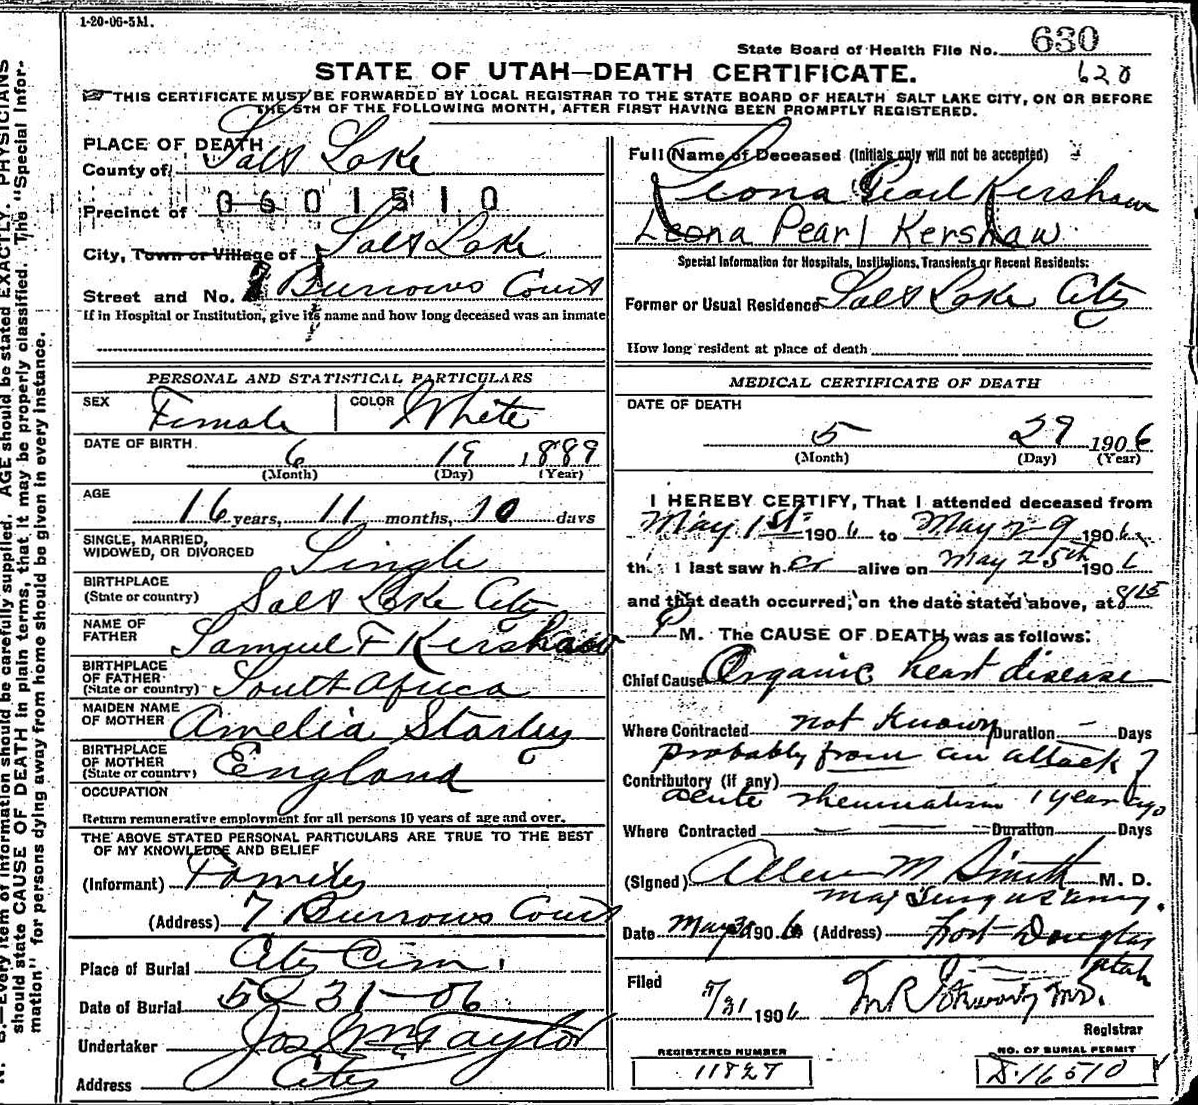 1-20-06-5M.
State Board of Health File No. 630
620
STATE OF UTAH—DEATH CERTIFICATE.
THIS CERTIFICATE MUST BE FORWARDED BY LOCAL REGISTRAR TO THE STATE BOARD OF HEALTH, SALT LAKE CITY, ON OR BEFORE
THE 5TH OF THE FOLLOWING MONTH, AFTER FIRST HAVING BEEN PROMPTLY REGISTERED.
PLACE OF DEATH
County of Salt Lake
Precinct of 0601510
City, Town or Village of Salt Lake
Street and No. 7 Burrows Court
If in Hospital or Institution, give its name and how long deceased was an inmate
PERSONAL AND STATISTICAL PARTICULARS
SEX Female COLOR White
DATE OF BIRTH
6 19 1889
(Month) (Day) (Year)
AGE
16 years, 11 months, 10 days
SINGLE, MARRIED,
WIDOWED, OR DIVORCED Single
BIRTHPLACE
(State or country) Salt Lake City
NAME OF
FATHER Samuel F Kershaw
BIRTHPLACE
OF FATHER
(State or country) South Africa
MAIDEN NAME
OF MOTHER Amelia Starley
BIRTHPLACE
OF MOTHER
(State or country) England
OCCUPATION
Return remunerative employment for all persons 10 years of age and over.
THE ABOVE STATED PERSONAL PARTICULARS ARE TRUE TO THE BEST
OF MY KNOWLEDGE AND BELIEF
(Informant) Family
(Address) 7 Burrows Court
Place of Burial City Cem.
Date of Burial 5-31-06
Undertaker Jos Wm Taylor
Address City
Full Name of Deceased (Initials only will not be accepted)
Leona Pearl Kershaw
Leona Pearl Kershaw
Special Information for Hospitals, Institutions, Transients or Recent Residents:
Former or Usual Residence Salt Lake City
How long resident at place of death
MEDICAL CERTIFICATE OF DEATH
DATE OF DEATH
5 29 1906
(Month) (Day) (Year)
I HEREBY CERTIFY, That I attended deceased from
May 1st 1906 to May 29 1906
that I last saw her alive on May 25th 1906
and that death occurred, on the date stated above, at 8 15
P M. The CAUSE OF DEATH was as follows:
Chief Cause Organic heart disease
Where Contracted not known Duration — Days
probably from an attack of
Contributory (if any)
acute rheumatism 1 year ago
Where Contracted Duration Days
(Signed) Allen M Smith M. D.
Maj Surg US Army.
Date May 30 1906 (Address) Fort Douglas
Utah
Filed
5/31 1906 M.D.
Registrar
REGISTERED NUMBER
11827
NO. OF BURIAL PERMIT
D.16510
N. B.—Every item of information should be carefully supplied. AGE should be stated EXACTLY. PHYSICIANS
should state CAUSE OF DEATH in plain terms, that it may be properly classified. The "Special Infor-
mation" for persons dying away from home should be given in every instance.